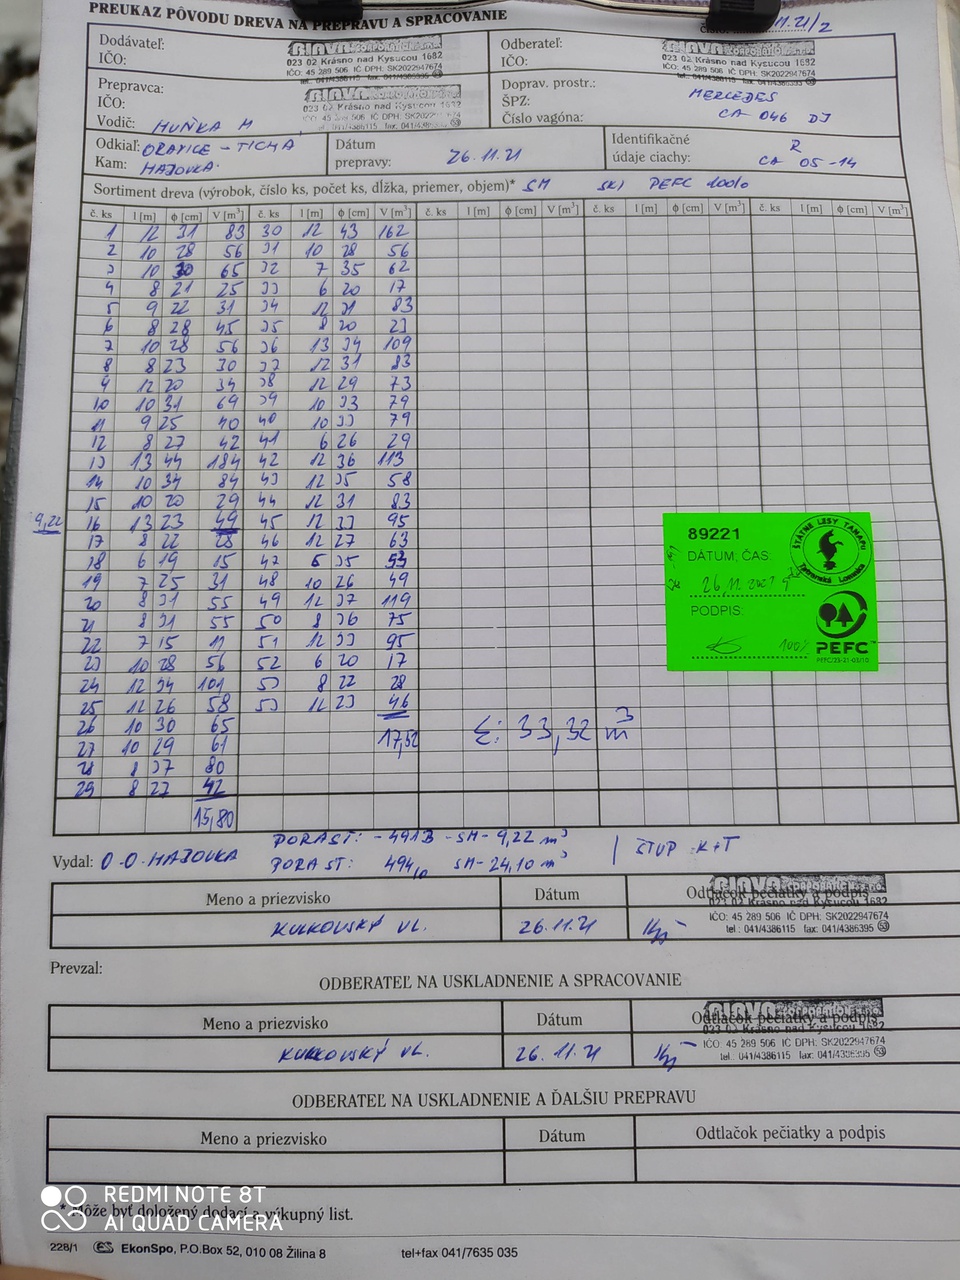 PREUKAZ PÔVODU DREVA NA PREPRAVU A SPRACOVANIE
11.21/2
Dodávateľ:
IČO:
023 02 Krásno nad Kysucou 1682
IČO: 45 289 506 IČ DPH: SK2022947674
Odberateľ:
IČO:
023 02 Krásno nad Kysucou 1682
IČO: 45 289 506 IČ DPH: SK2022947674
Prepravca:
IČO:
Vodič: MUŇKA M
023 02 Krásno nad Kysucou 1682
Doprav. prostr.: MERCEDES
ŠPZ: CA 046 DJ
Číslo vagóna:
Odkiaľ: ORAVICE - TICHA
Kam: HAJOVKA
Dátum
prepravy: 26.11.21
Identifikačné R
údaje ciachy: CA 05-14
Sortiment dreva (výrobok, číslo ks, počet ks, dĺžka, priemer, objem)* SM SKJ PEFC 100%
č. ks l [m] ϕ [cm] V [m³] č. ks l [m] ϕ [cm] V [m³] č. ks l [m] ϕ [cm] V [m³] č. ks l [m] ϕ [cm] V [m³] č. ks l [m] ϕ [cm] V [m³]
1 12 31 83 30 12 43 162
2 10 28 56 31 10 28 56
3 10 30 65 32 7 35 62
4 8 21 25 33 6 20 17
5 9 22 31 34 12 31 83
6 8 28 45 35 8 20 23
7 10 28 56 36 13 34 109
8 8 23 30 37 12 31 83
9 12 20 34 38 12 29 73
10 10 31 69 39 10 33 79
11 9 25 40 40 10 33 79
12 8 27 42 41 6 26 29
13 13 44 184 42 12 36 113
14 10 34 84 43 12 35 58
15 10 20 29 44 12 31 83
9,22 16 13 23 49 45 12 33 95
17 8 22 28 46 12 27 63
18 6 19 15 47 6 35 53
19 7 25 31 48 10 26 49
20 8 31 55 49 12 37 119
21 8 31 55 50 8 36 75
22 7 15 11 51 12 33 95
23 10 28 56 52 6 20 17
24 12 34 101 53 8 22 28
25 12 26 58 53 12 23 46
26 10 30 65
27 10 29 61 17,52
28 8 37 80
29 8 27 42
15,80
Σ: 33,32 m³
89221
DÁTUM, ČAS:
26.11.2021
PODPIS:
100%
ŠTÁTNE LESY TANAPU
Tatranská Lomnica
PEFC™
PEFC/23-21-03/10
PORAST: - 491B - SM - 9,22 m³
Vydal: O-O-HAJOVKA
PORAST: 494 SM - 24,10 m³
ŠTUP K+T
Meno a priezvisko Dátum Odtlačok pečiatky a podpis
KULKOVSKÝ VL. 26.11.21
023 02 Krásno nad Kysucou 1682
IČO: 45 289 506 IČ DPH: SK2022947674
tel.: 041/4386115 fax: 041/4386395
Prevzal:
ODBERATEĽ NA USKLADNENIE A SPRACOVANIE
Meno a priezvisko Dátum Odtlačok pečiatky a podpis
KULKOVSKÝ VL. 26.11.21
023 02 Krásno nad Kysucou 1682
IČO: 45 289 506 IČ DPH: SK2022947674
tel.: 041/4386115 fax: 041/4386395
ODBERATEĽ NA USKLADNENIE A ĎALŠIU PREPRAVU
Meno a priezvisko Dátum Odtlačok pečiatky a podpis
REDMI NOTE 8T
AI QUAD CAMERA
* Môže byť doložený dodací a výkupný list.
228/1 ES EkonSpo, P.O.Box 52, 010 08 Žilina 8 tel+fax 041/7635 035